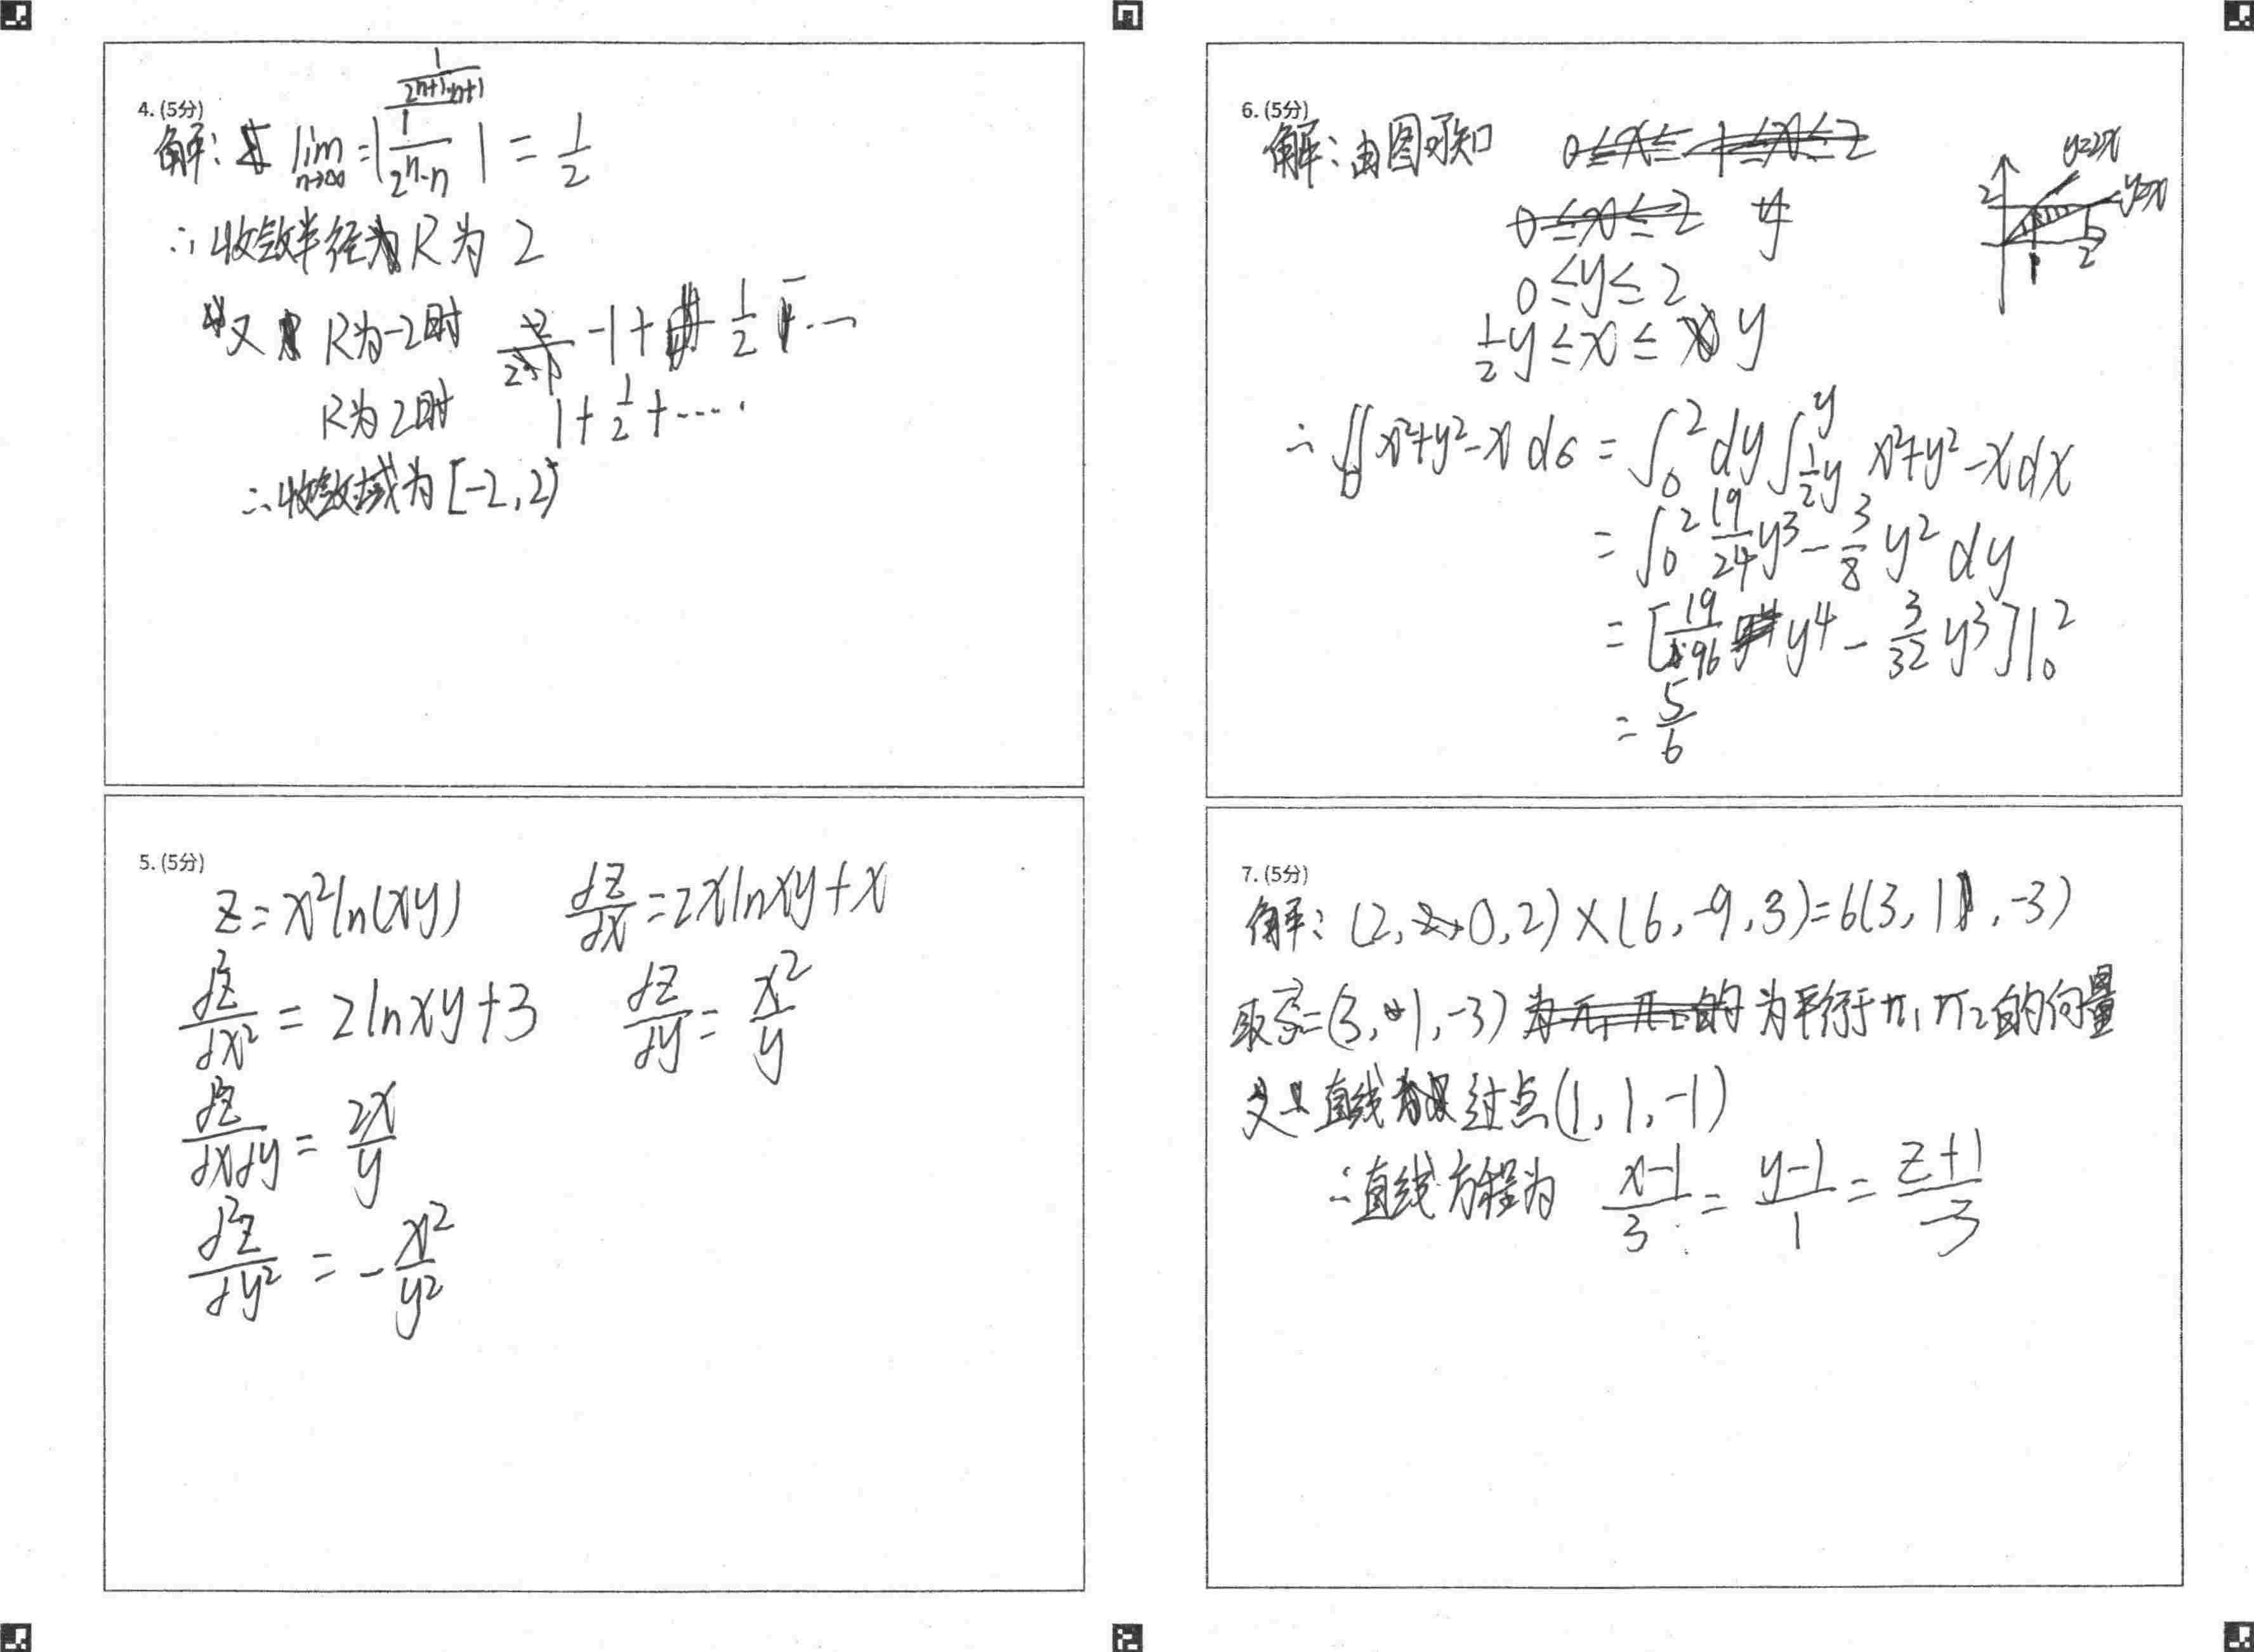 4. (5分)
解: lim n→∞ = | (1/(2^{n+1}·n+1)) / (1/(2^n·n)) | = 1/2
∴ 收敛半径 R为 2
又 R为-2时 -1+ 1/2 - ...
R为2时 1+ 1/2 + ....
∴收敛域为 [-2, 2)
5. (5分)
z = x² ln(xy) dz/dx = 2x lnxy + x
d²z/dx² = 2 lnxy + 3 dz/dy = x²/y
d²z/dxdy = 2x/y
d²z/dy² = - x²/y²
6. (5分)
解: 由图可知 0≤x≤ 1≤x≤2
y=2x
y=x
2
1 2
0≤x≤2 y
0≤y≤2
1/2 y ≤ x ≤ y
∴ ∬_D x²+y²-x dσ = ∫_0^2 dy ∫_{1/2 y}^y x²+y²-x dx
= ∫_0^2 19/24 y³ - 3/8 y² dy
= [19/96 y⁴ - 3/32 y³]|_0^2
= 5/6
7. (5分)
解: (2, 0, 2) × (6, -9, 3) = 6(3, 1, -3)
取 s⃗=(3, 1, -3) 为π₁ π₂的 为平行于π₁ π₂的向量
又 直线 过点 (1, 1, -1)
∴直线方程为 (x-1)/3 = (y-1)/1 = (z+1)/-3